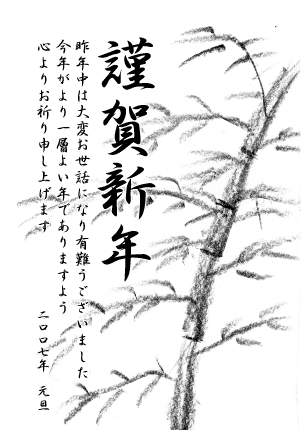 謹賀新年
昨年中は大変お世話になり有難うございました
今年がより一層よい年でありますよう
心よりお祈り申し上げます
二〇〇七年 元旦